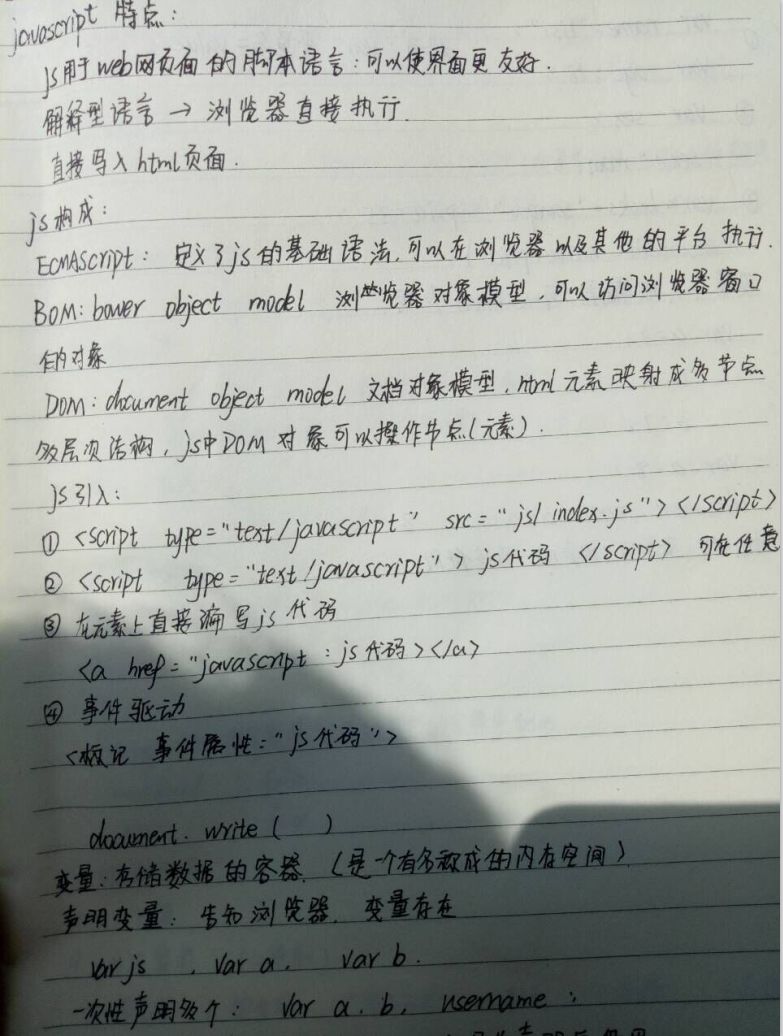 javascript 特点:
js用于web网页面的脚本语言:可以使界面更友好.
解释型语言 → 浏览器直接执行.
直接写入html页面.
js构成:
ECMAScript: 定义了js的基础语法,可以在浏览器以及其他的平台执行.
BOM: bower object model 浏览器对象模型,可以访问浏览器窗口
的对象
DOM: document object model 文档对象模型,html元素映射成多节点
多层次结构,js中DOM对象可以操作节点(元素).
js引入:
① <script type="text/javascript" src="js/index.js"></script>
② <script type="text/javascript"> js代码 </script> 可在任意
③ 在元素上直接编写js代码
<a href="javascript:js代码></a>
④ 事件驱动
<标记 事件属性="js代码">
document.write( )
变量:存储数据的容器.(是一个有名称成的内存空间)
声明变量:告知浏览器.变量存在
var js , var a. var b.
一次性声明多个: var a. b. username ;